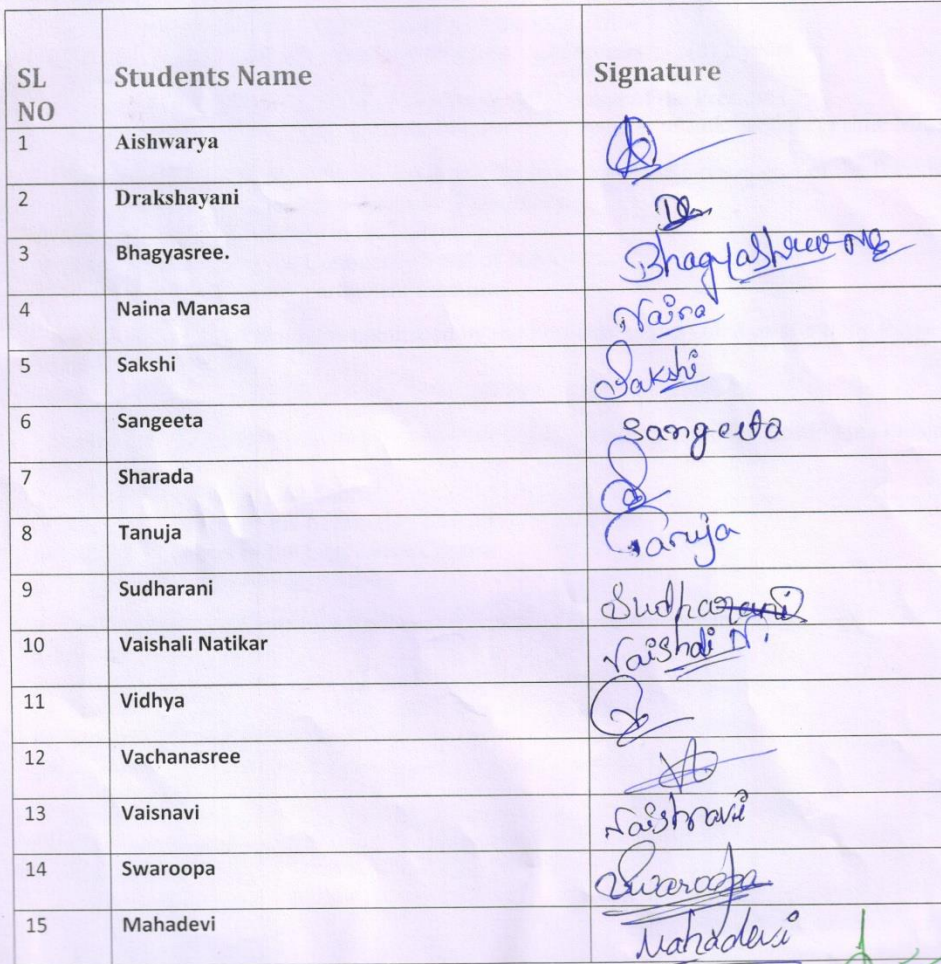 SL NO Students Name Signature
1 Aishwarya
2 Drakshayani
3 Bhagyasree. Bhagyashree
4 Naina Manasa Naina
5 Sakshi Sakshi
6 Sangeeta Sangeeta
7 Sharada
8 Tanuja Tanuja
9 Sudharani Sudharani
10 Vaishali Natikar Vaishali N.
11 Vidhya
12 Vachanasree
13 Vaisnavi Vaishnavi
14 Swaroopa Swaroopa
15 Mahadevi Mahadevi